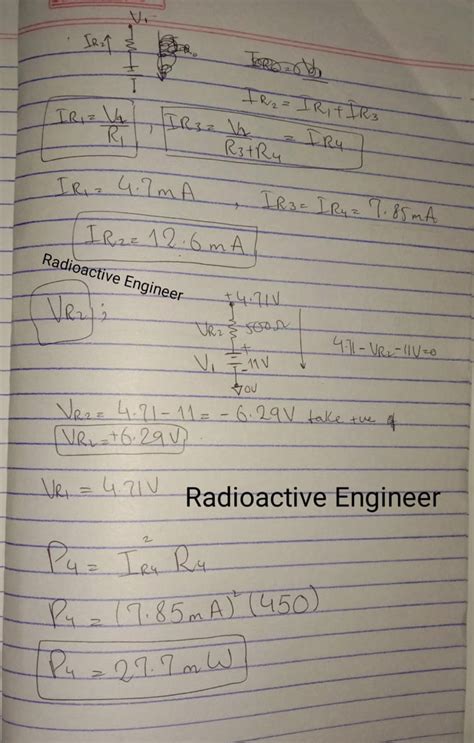 V₁
IR₂↑
I
IR₂ = IR₁ + IR₃
IR₁ = V₁/R₁ , IR₃ = V₁/R₃+R₄ = IR₄
IR₁ = 4.7mA , IR₃ = IR₄ = 7.85mA
IR₂ = 12.6mA
Radioactive Engineer
VR₂ ;
+4.71V
VR₂ 500Ω
4.71-VR₂-11V=0
V₁ + - 11V
0V
VR₂ = 4.71 - 11 = - 6.29V take +ve of
VR₂ = +6.29V
VR₁ = 4.71V
Radioactive Engineer
P₄ = I²R₄ R₄
P₄ = (7.85mA)² (450)
P₄ = 27.7mW